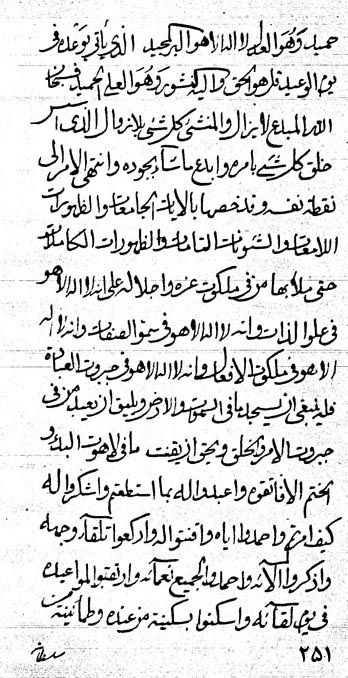 حميد وهو العلي لا اله الا هو البر المجيد الذي يأتي بوعده في
يوم الوعيد قل هو الحق واليه النشور وهو العلي الحميد فسبحان
الله المبدع لا يزال والمنشئ كل شئ بلا زوال الذي
خلق كل شئ بامره وابدع ما شاء بجوده وانتهى الامر الى
نقطة نفسه وقد خصها بالايات الجامعات والظهورات
اللامعات والشئونات التامات والظهورات الكاملات
حتى ملأ بها من في ملكوت عزه واجلاله على انه لا اله الا هو
في علو الذات وانه لا اله الا هو في سمو الصفات وانه لا اله
الا هو في ملكوت الافعال وانه لا اله الا هو في جبروت العبادة
فله ينبغي ان يسجد ما في السموات والارض ويليق ان يعبد من في
جبروت الامر والخلق ويحق ان يقنت ما في لاهوت البدء و
الختم الا فاتقوه واعبدوا له بما استطعتم واشكروا له
كيف امرتم واحمدوا اياه واقنتوا له واركعوا تلقاء وجهه
واذكروا آلائه واحمدوا لجميع نعمائه وارتقبوا لمواعيده
في يوم لقائه واسكنوا بسكينة من عنده وطمانينة من
٢٥١